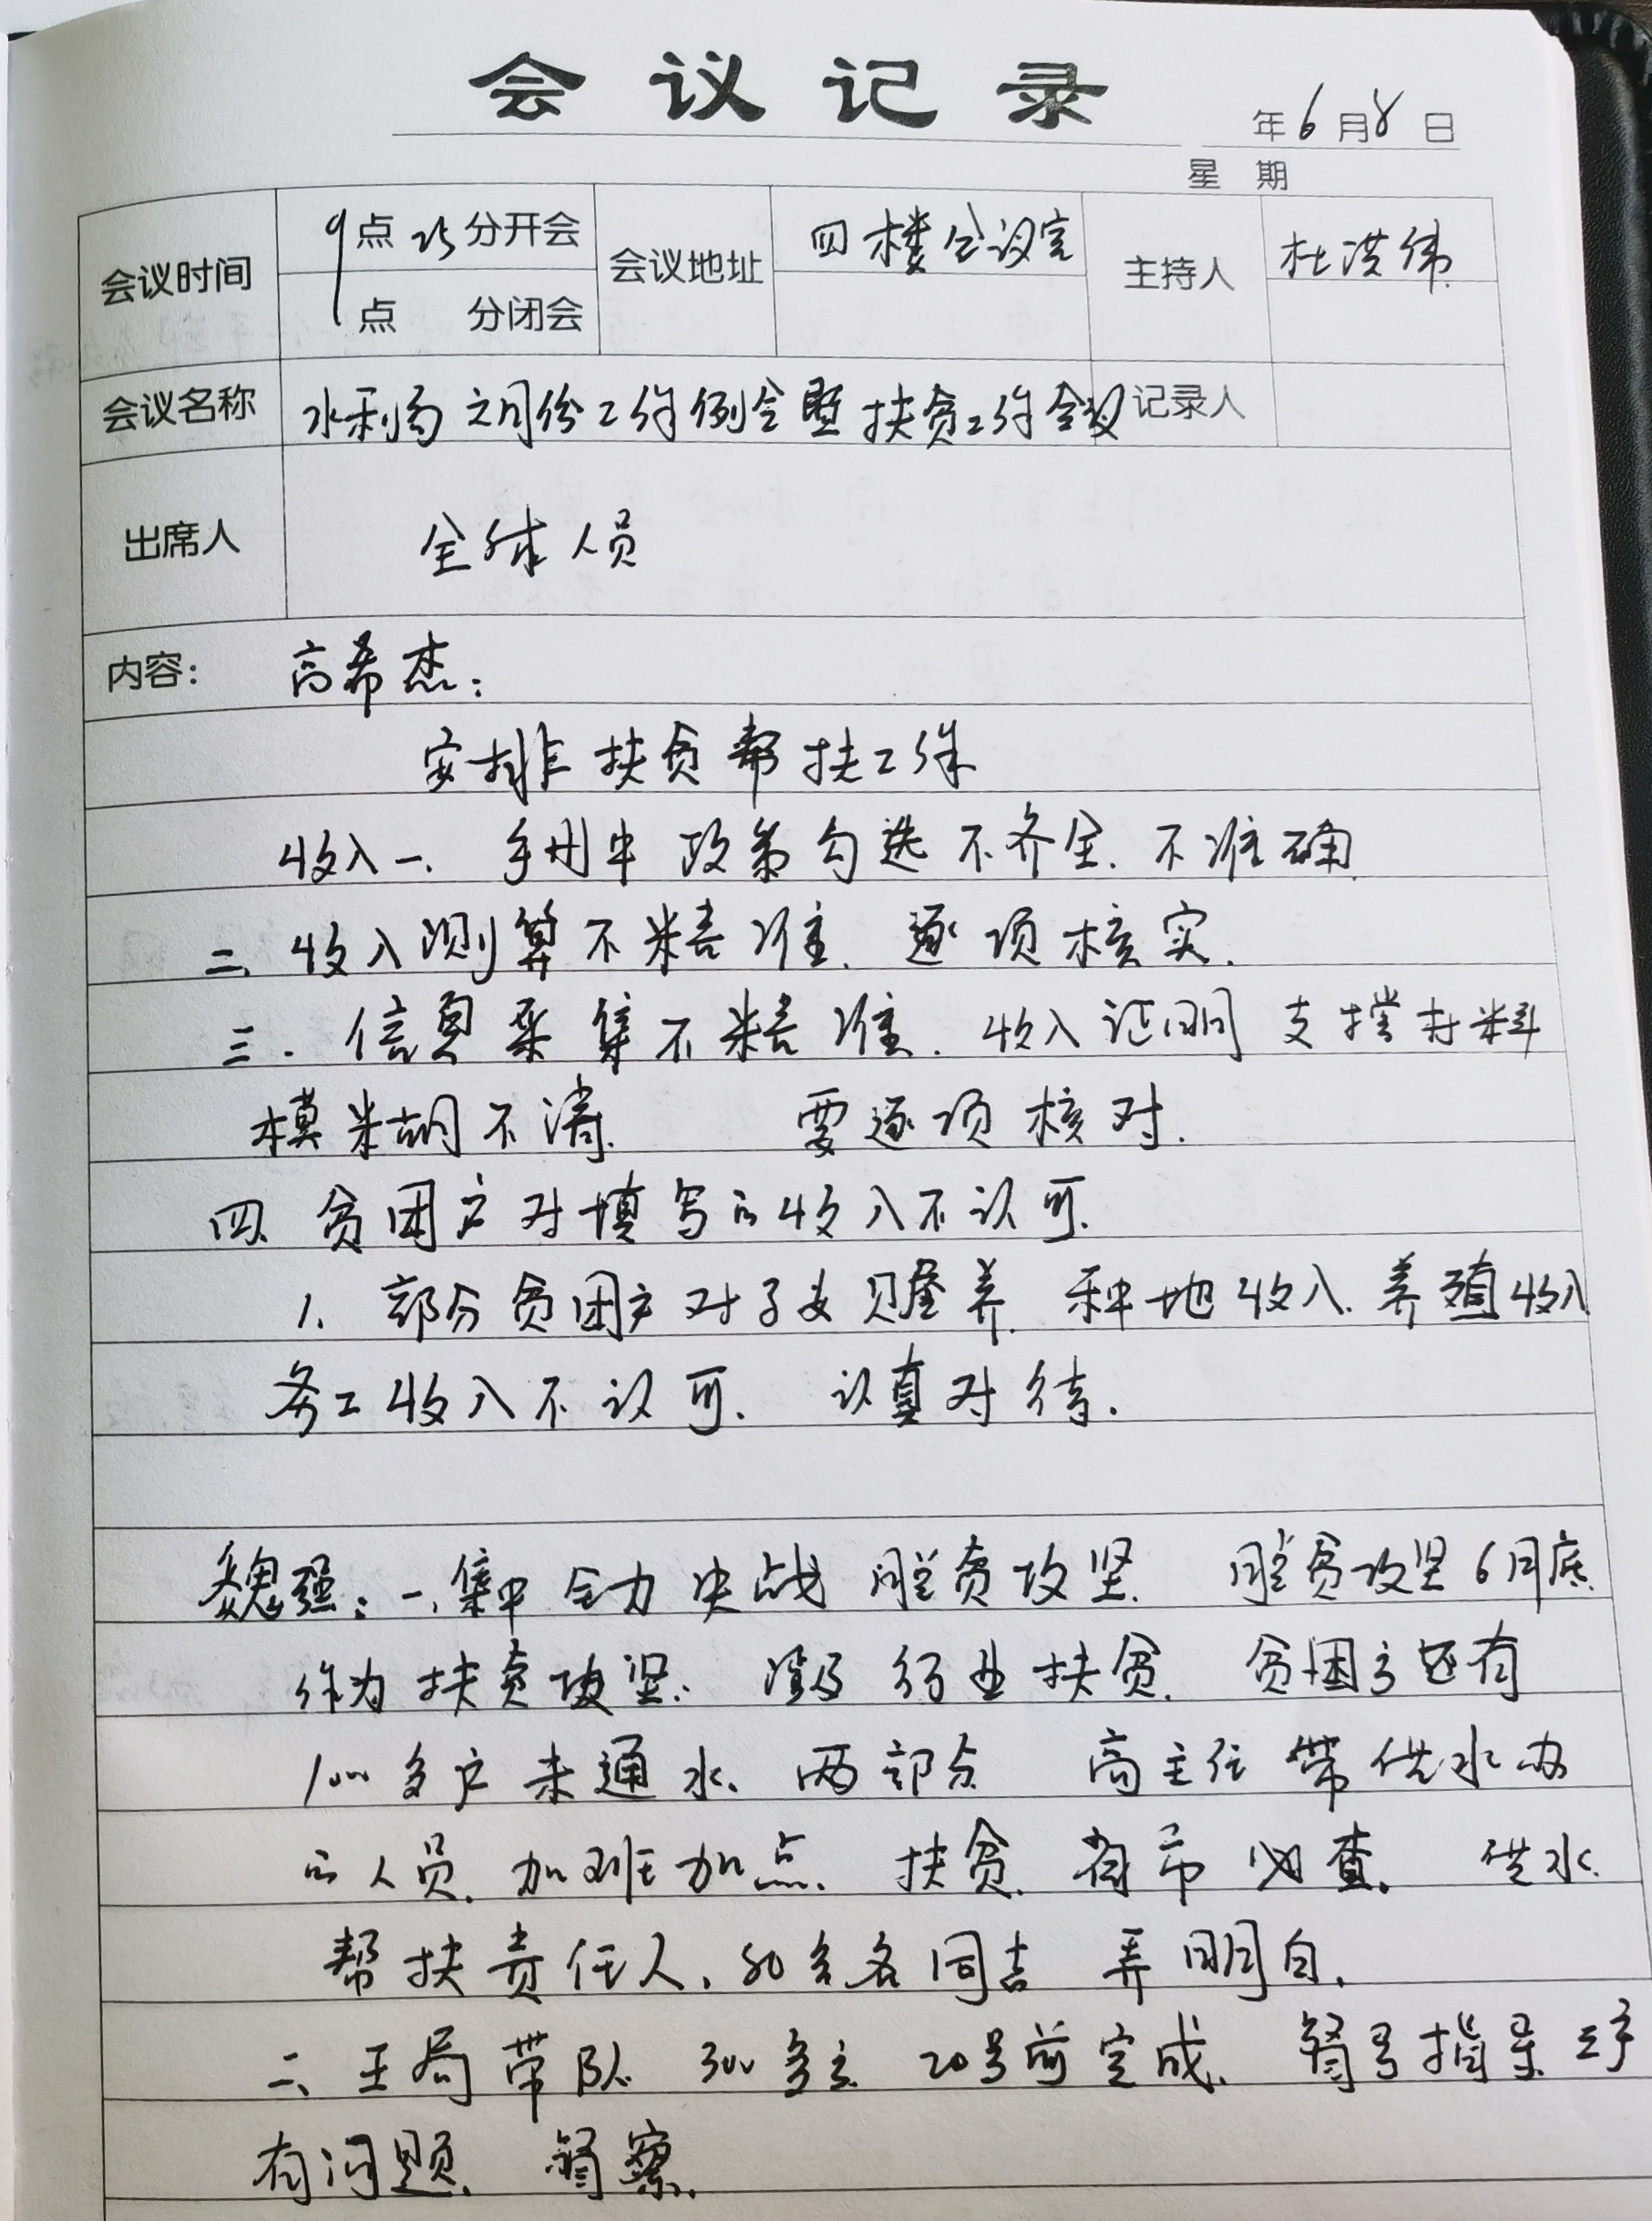 会议记录
年6月8日
星 期
会议时间 9点25分开会 会议地址 四楼会议室 主持人 杜洪伟
点 分闭会
会议名称 水利局六月份工作例会暨扶贫工作会议 记录人
出席人 全体人员
内容: 高希杰:
安排扶贫帮扶工作
收入一、手册中政策勾选不齐全、不准确
二、收入测算不精准、逐项核实.
三、信息采集不精准、收入证明 支撑材料
模糊不清、 要逐项核对.
四、贫困户对填写的收入不认可.
1、部分贫困户对子女赡养、种地收入、养殖收入
务工收入不认可、 认真对待.
魏强:一、集中全力决战脱贫攻坚、 脱贫攻坚6月底
作为扶贫攻坚、 行业扶贫、 贫困户还有
100多户未通水、两部分 高主任带供水办
的人员、加班加点、扶贫、省市必查、 供水
帮扶责任人、80多名同志 弄明白、
二、王局带队 300多户 20号前完成、 指导
有问题、督察、